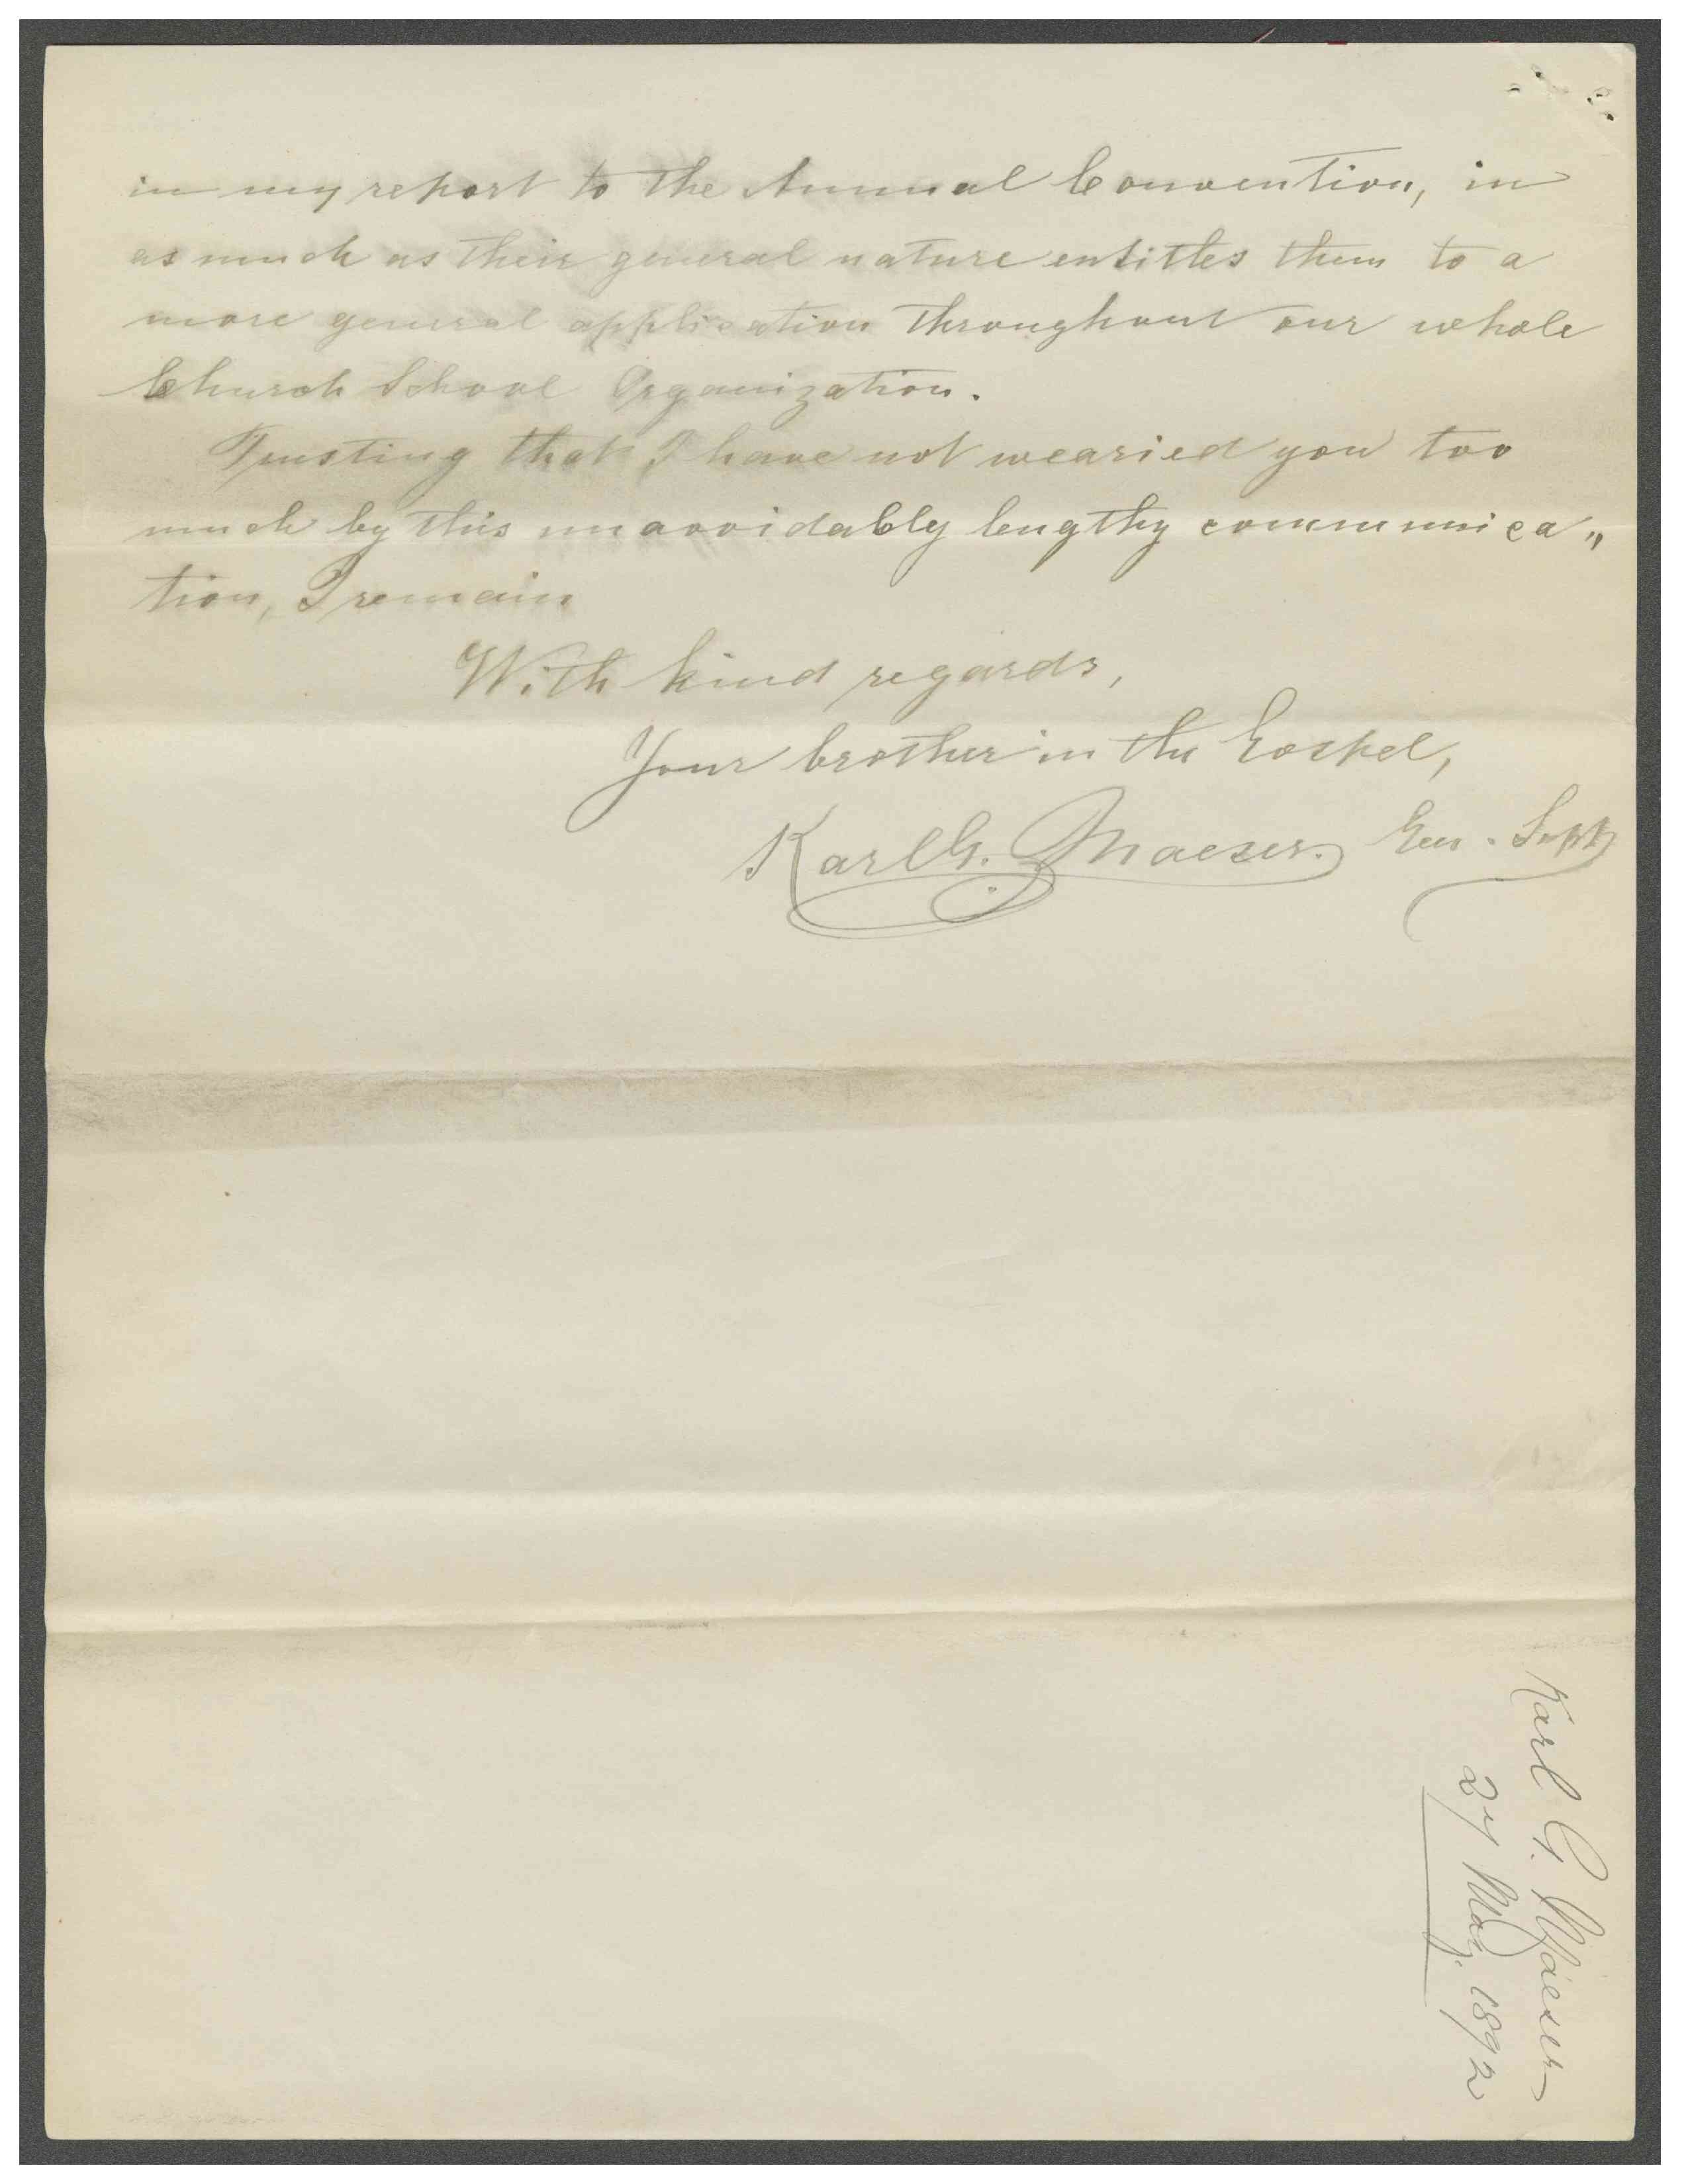 in my report to the Annual Convention, in
as much as their general nature entitles them to a
more general application throughout our whole
Church School Organization.
Trusting that I have not wearied you too
much by this unavoidably lengthy communica„
tion, I remain
With kind regards,
Your brother in the Gospel,
Karl G. Maeser. Gen. Supt
Karl G. Maeser
27 May. 1892